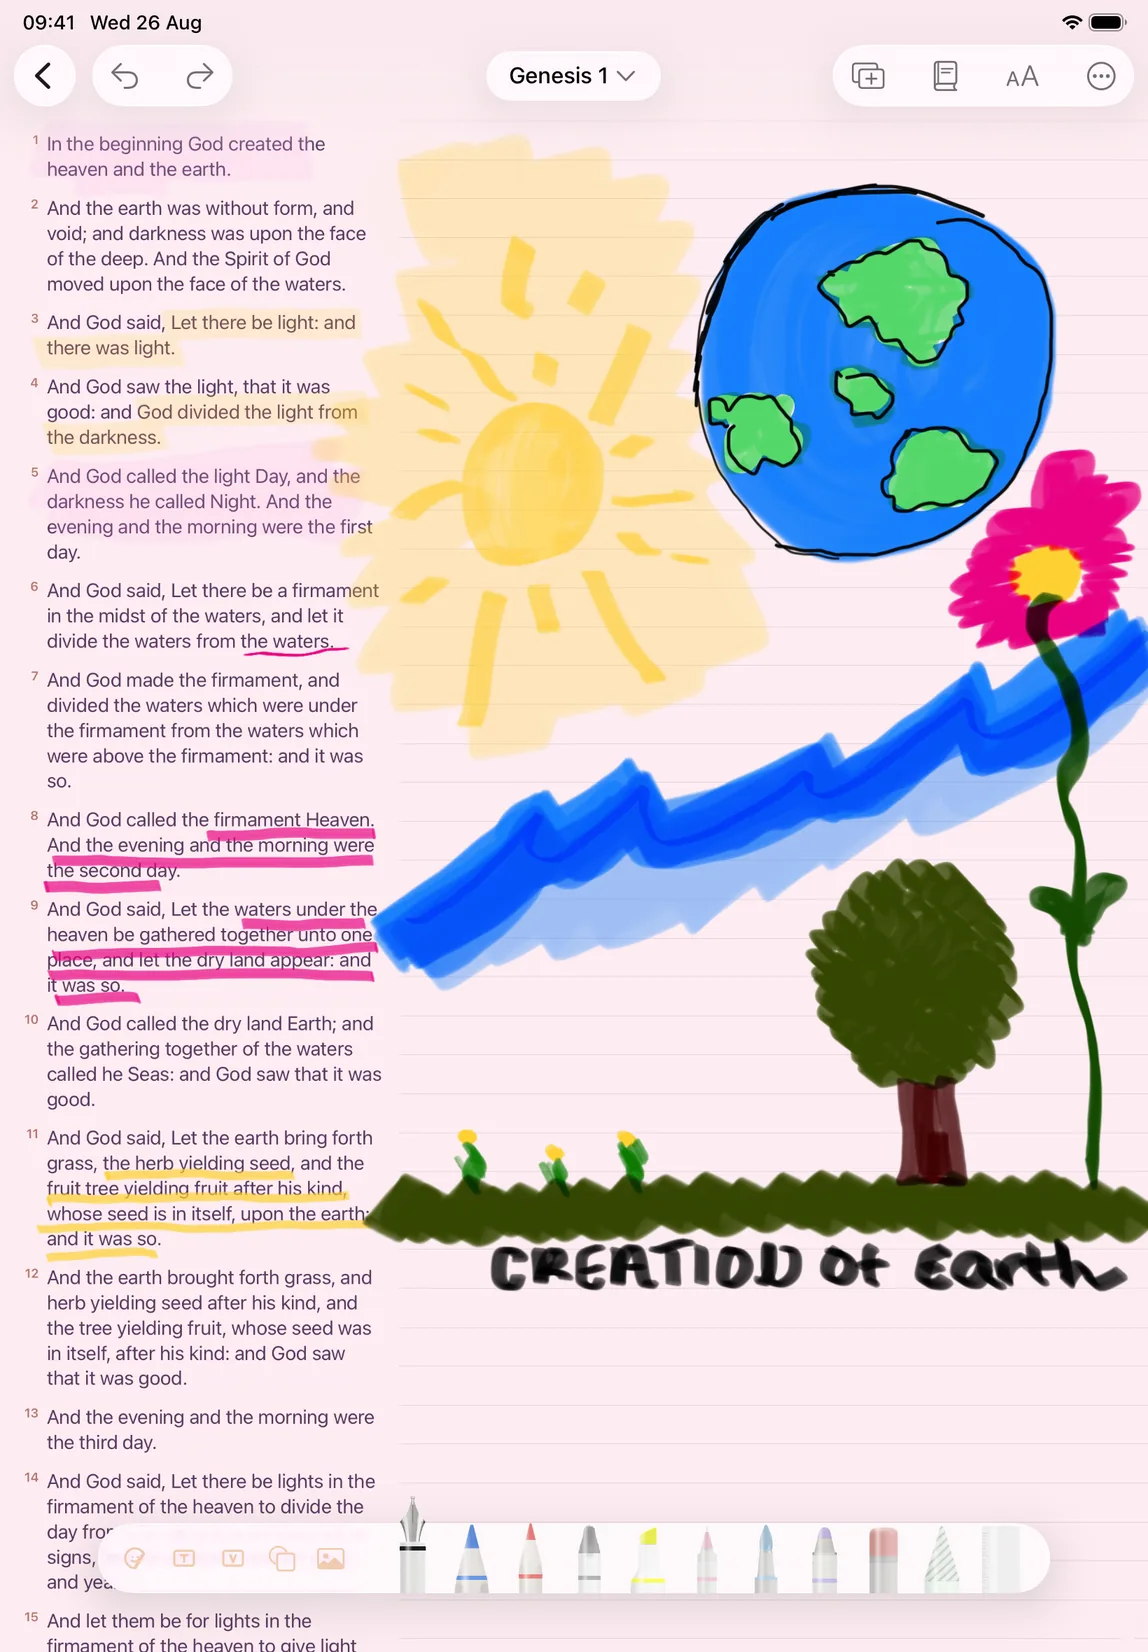 09:41 Wed 26 Aug
Genesis 1
AA
1 In the beginning God created the
heaven and the earth.
2 And the earth was without form, and
void; and darkness was upon the face
of the deep. And the Spirit of God
moved upon the face of the waters.
3 And God said, Let there be light: and
there was light.
4 And God saw the light, that it was
good: and God divided the light from
the darkness.
5 And God called the light Day, and the
darkness he called Night. And the
evening and the morning were the first
day.
6 And God said, Let there be a firmament
in the midst of the waters, and let it
divide the waters from the waters.
7 And God made the firmament, and
divided the waters which were under
the firmament from the waters which
were above the firmament: and it was
so.
8 And God called the firmament Heaven.
And the evening and the morning were
the second day.
9 And God said, Let the waters under the
heaven be gathered together unto one
place, and let the dry land appear: and
it was so.
10 And God called the dry land Earth; and
the gathering together of the waters
called he Seas: and God saw that it was
good.
11 And God said, Let the earth bring forth
grass, the herb yielding seed, and the
fruit tree yielding fruit after his kind,
whose seed is in itself, upon the earth:
and it was so.
CREATION of Earth
12 And the earth brought forth grass, and
herb yielding seed after his kind, and
the tree yielding fruit, whose seed was
in itself, after his kind: and God saw
that it was good.
13 And the evening and the morning were
the third day.
14 And God said, Let there be lights in the
firmament of the heaven to divide the
day
signs,
and
T V
15 And let them be for lights in the
firmament of the heaven to give light